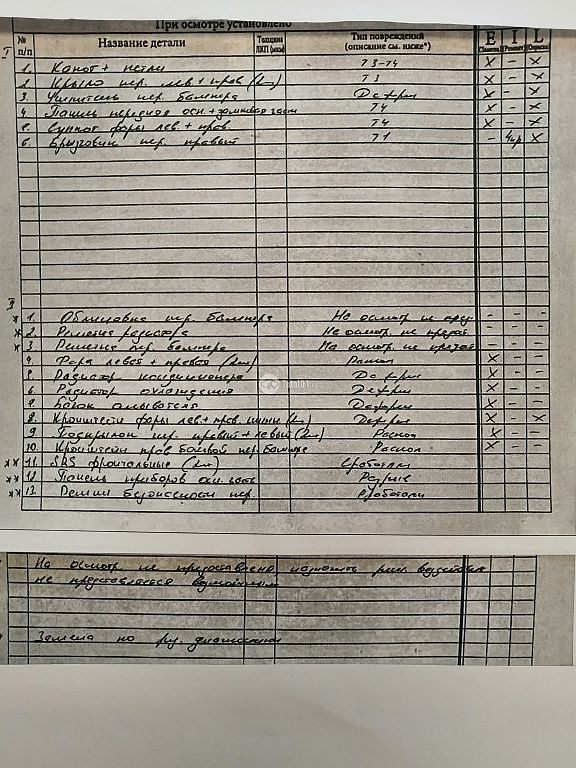 При осмотре установлено
№ п/п Название детали Толщина ЛКП (мкм) Тип повреждений (описание см. ниже*) E (Замена) I (Ремонт) L (Окраска)
I
1. Капот + петли Т3-Т4 X - X
2. Крыло пер. лев + прав (2шт) Т3 X - X
3. Усилитель пер. бампера Деформ X - X
4. Панель передняя осн. + замковая част Т4 X - X
5. Суппорт фары лев + прав. Т4 X - X
6. Брызговик пер. правый Т1 - X
II
* 1. Облицовка пер. бампера Не осмотр не пред - - -
* 2. Решетка радиатора Не осмотр не предст - - -
* 3. Решетка пер. бампера На осмотр не предст - - -
4. Фара левая + правая (2шт) Раскол X - -
5. Радиатор кондиционера Деформ X - -
6. Радиатор охлаждения Деформ X - -
7. Бачок омывателя Деформ X - -
8. Кронштейн фары лев + прав. (2шт) Деформ X - X
9. Подкрылок пер. правый + левый (2шт) Раскол X - -
10. Кронштейн прав боковой пер. бампера Раскол X - -
** 11. SRS фронтальные (2шт) Сработали
** 12. Панель приборов осн. часть Разрыв
** 13. Ремни безопасности пер. Сработали
На осмотр не предоставлено, назначить рем. воздействия
не представляется возможным
Замена по рез. диагностики